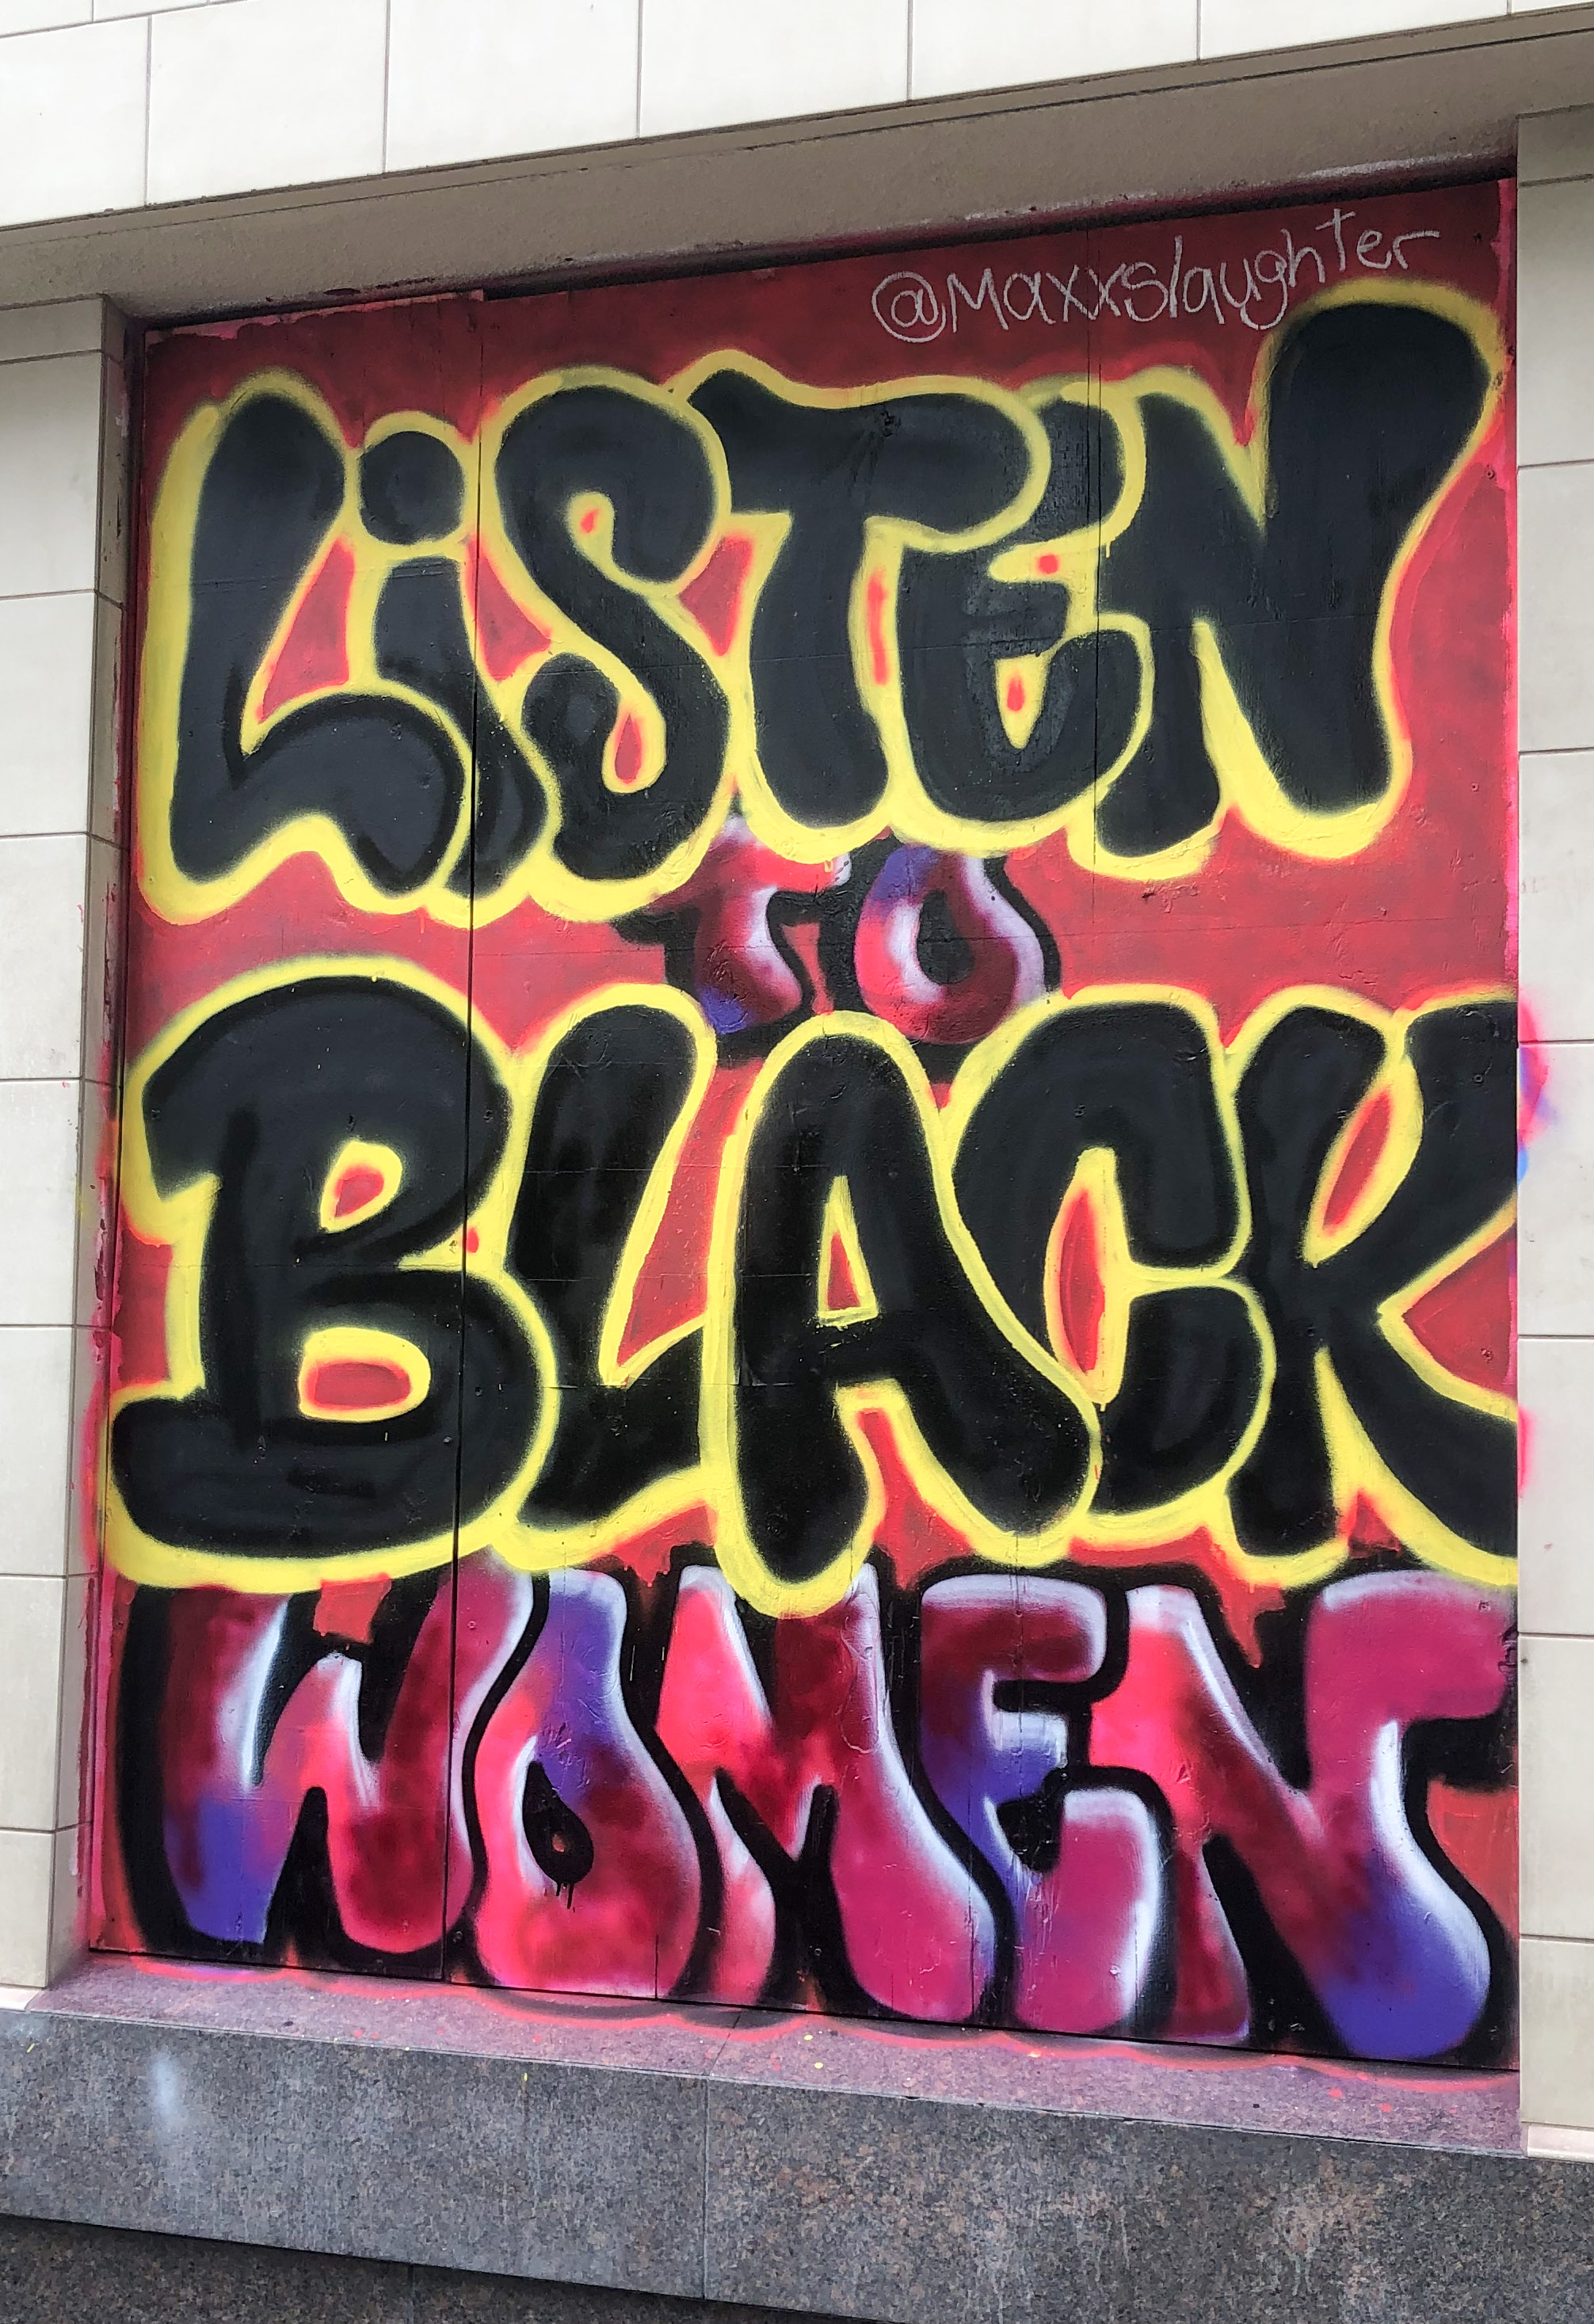 @Maxxslaughter
LiSTEN
TO
BLACK
WOMEN